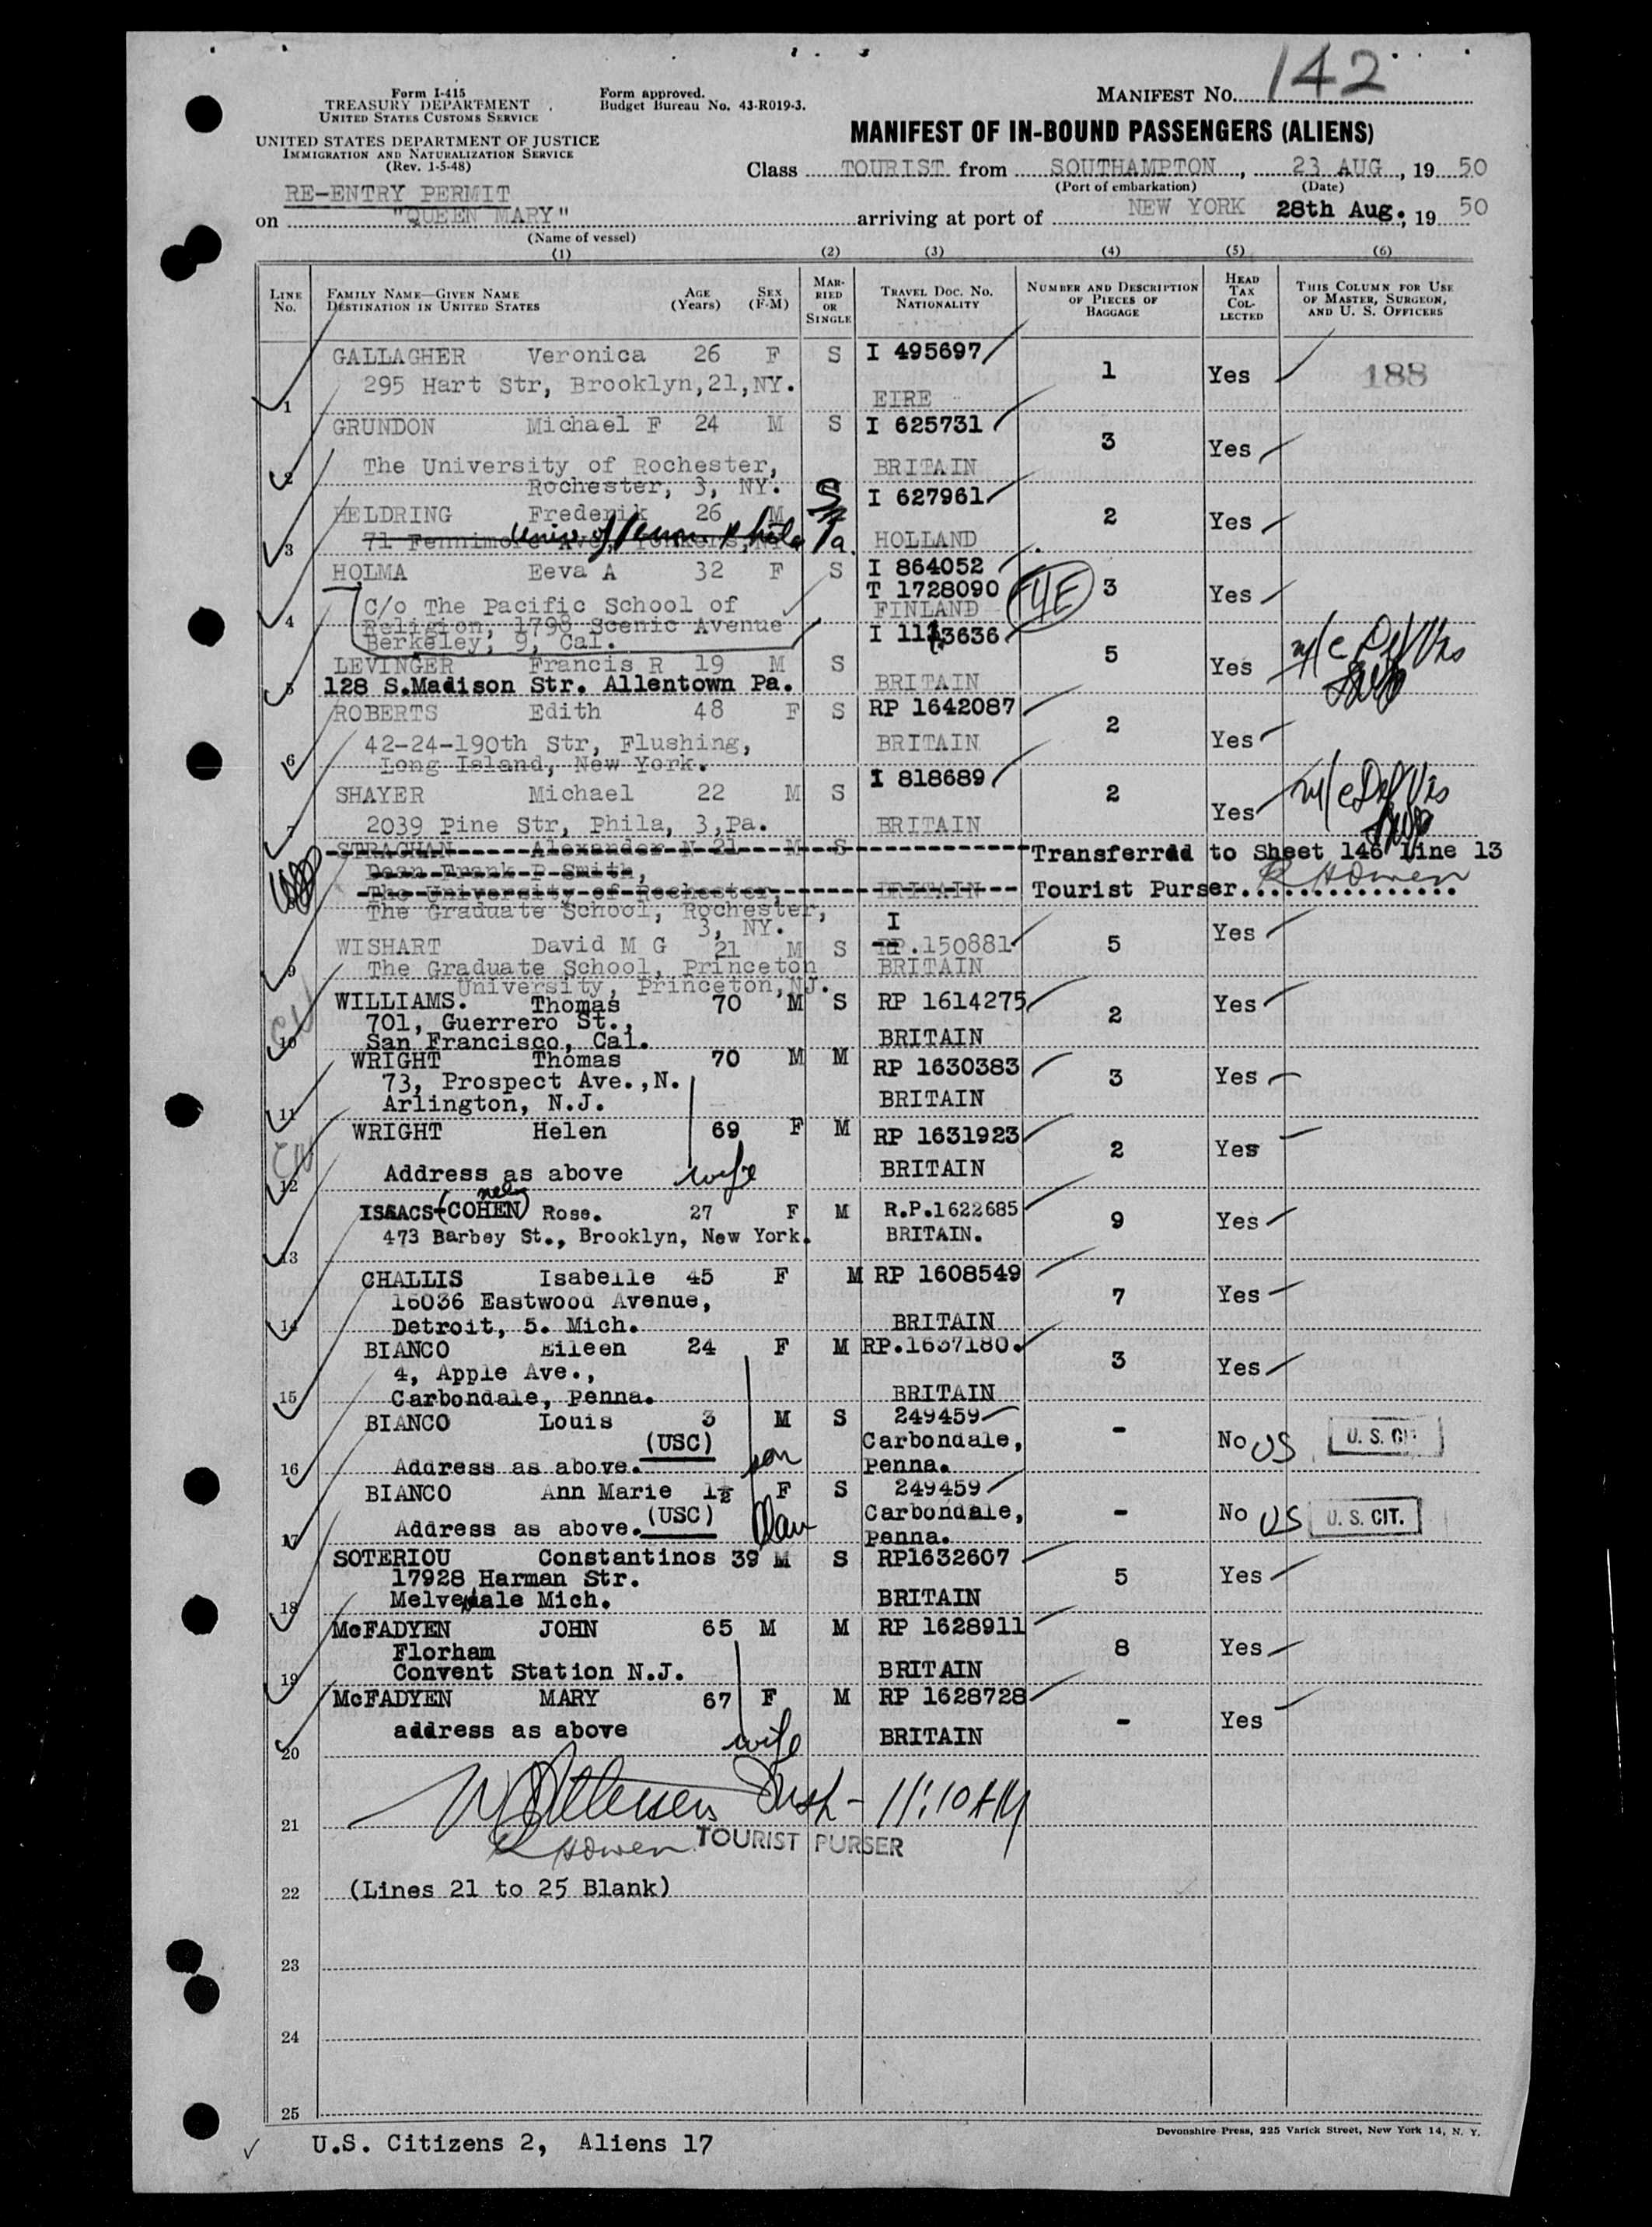 142
Form I-415
TREASURY DEPARTMENT
UNITED STATES CUSTOMS SERVICE
Form approved.
Budget Bureau No. 43-R019-3.
MANIFEST NO.
UNITED STATES DEPARTMENT OF JUSTICE
IMMIGRATION AND NATURALIZATION SERVICE
(Rev. 1-5-48)
MANIFEST OF IN-BOUND PASSENGERS (ALIENS)
Class TOURIST from SOUTHAMPTON, 23 AUG, 19 50
(Port of embarkation) (Date)
RE-ENTRY PERMIT
on "QUEEN MARY" arriving at port of NEW YORK 28th Aug., 19 50
(Name of vessel)
(1) (2) (3) (4) (5) (6)
LINE No. FAMILY NAME—GIVEN NAME DESTINATION IN UNITED STATES AGE (Years) SEX (F-M) MARRIED OR SINGLE TRAVEL DOC. NO. NATIONALITY NUMBER AND DESCRIPTION OF PIECES OF BAGGAGE HEAD TAX COLLECTED THIS COLUMN FOR USE OF MASTER, SURGEON, AND U. S. OFFICERS
GALLAGHER Veronica 26 F S I 495697 1 Yes 188
295 Hart Str, Brooklyn,21,NY.
1 EIRE
GRUNDON Michael F 24 M S I 625731 3 Yes
2 The University of Rochester, BRITAIN
Rochester, 3, NY.
HELDRING Frederik 26 M S I 627961 2 Yes
3 71 Fennimore Ave, Yonkers, NY Univ of Penn Phila Pa. HOLLAND
HOLMA Eeva A 32 F S I 864052 3 Yes
T 1728090 4E
4 C/o The Pacific School of FINLAND
Religion, 1798 Scenic Avenue
Berkeley, 9, Cal.
LEVINGER Francis R 19 M S I 1113636 5 Yes
5 128 S.Madison Str. Allentown Pa. BRITAIN
ROBERTS Edith 48 F S RP 1642087 2 Yes
6 42-24-190th Str, Flushing, BRITAIN
Long Island, New York.
SHAYER Michael 22 M S I 818689 2 Yes
7 2039 Pine Str, Phila, 3,Pa. BRITAIN
STRACHAN Alexander N 21 M S Transferred to Sheet 146 Line 13
Dean Frank P Smith,
The University of Rochester, BRITAIN Tourist Purser. R H Owen
The Graduate School, Rochester,
3, NY.
WISHART David M G 21 M S I RP.150881 5 Yes
9 The Graduate School, Princeton BRITAIN
University, Princeton,NJ.
WILLIAMS. Thomas 70 M S RP 1614275 2 Yes
701, Guerrero St.,
10 San Francisco, Cal. BRITAIN
WRIGHT Thomas 70 M M RP 1630383 3 Yes
73, Prospect Ave.,N.
11 Arlington, N.J. BRITAIN
WRIGHT Helen 69 F M RP 1631923 2 Yes
12 Address as above wife BRITAIN
nee
ISAACS (COHEN) Rose. 27 F M R.P.1622685 9 Yes
13 473 Barbey St., Brooklyn, New York. BRITAIN.
CHALLIS Isabelle 45 F M RP 1608549 7 Yes
16036 Eastwood Avenue,
14 Detroit, 5. Mich. BRITAIN
BIANCO Eileen 24 F M RP.1637180. 3 Yes
4, Apple Ave.,
15 Carbondale, Penna. BRITAIN
BIANCO Louis 3 M S 249459 - No US U. S. CIT
(USC) Carbondale,
16 Address as above. son Penna.
BIANCO Ann Marie 1½ F S 249459 - No US U. S. CIT.
(USC) Carbondale,
17 Address as above. Dau Penna.
SOTERIOU Constantinos 39 M S RP1632607 5 Yes
17928 Harman Str.
18 Melvendale Mich. BRITAIN
McFADYEN JOHN 65 M M RP 1628911 8 Yes
Florham
19 Convent Station N.J. BRITAIN
McFADYEN MARY 67 F M RP 1628728 - Yes
20 address as above wife BRITAIN
11:10 AM
21
R H Owen TOURIST PURSER
22 (Lines 21 to 25 Blank)
23
24
25
U.S. Citizens 2, Aliens 17
Devonshire Press, 225 Varick Street, New York 14, N. Y.